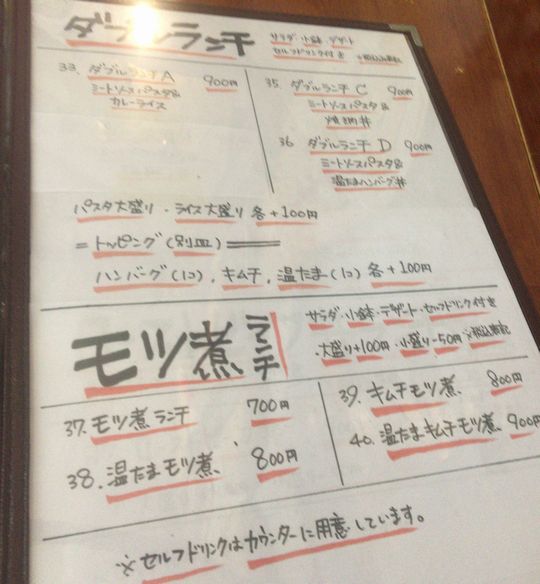 ダブルランチ
サラダ・小鉢・デザート
セルフドリンク付き ※税込表記
33. ダブルランチA 900円
ミートソースパスタ&
カレーライス
35. ダブルランチC 900円
ミートソースパスタ&
焼肉丼
36 ダブルランチD 900円
ミートソースパスタ&
温たまハンバーグ丼
パスタ大盛り・ライス大盛り 各+100円
=トッピング(別皿)
ハンバーグ(1コ)、キムチ、温たま(1コ) 各+100円
モツ煮ランチ
サラダ・小鉢・デザート・セルフドリンク付き
・大盛り+100円・小盛り-50円 ※税込表記
37. モツ煮ランチ 700円
38. 温たまモツ煮 800円
39. キムチモツ煮 800円
40. 温たまキムチモツ煮 900円
※セルフドリンクはカウンターに用意しています。